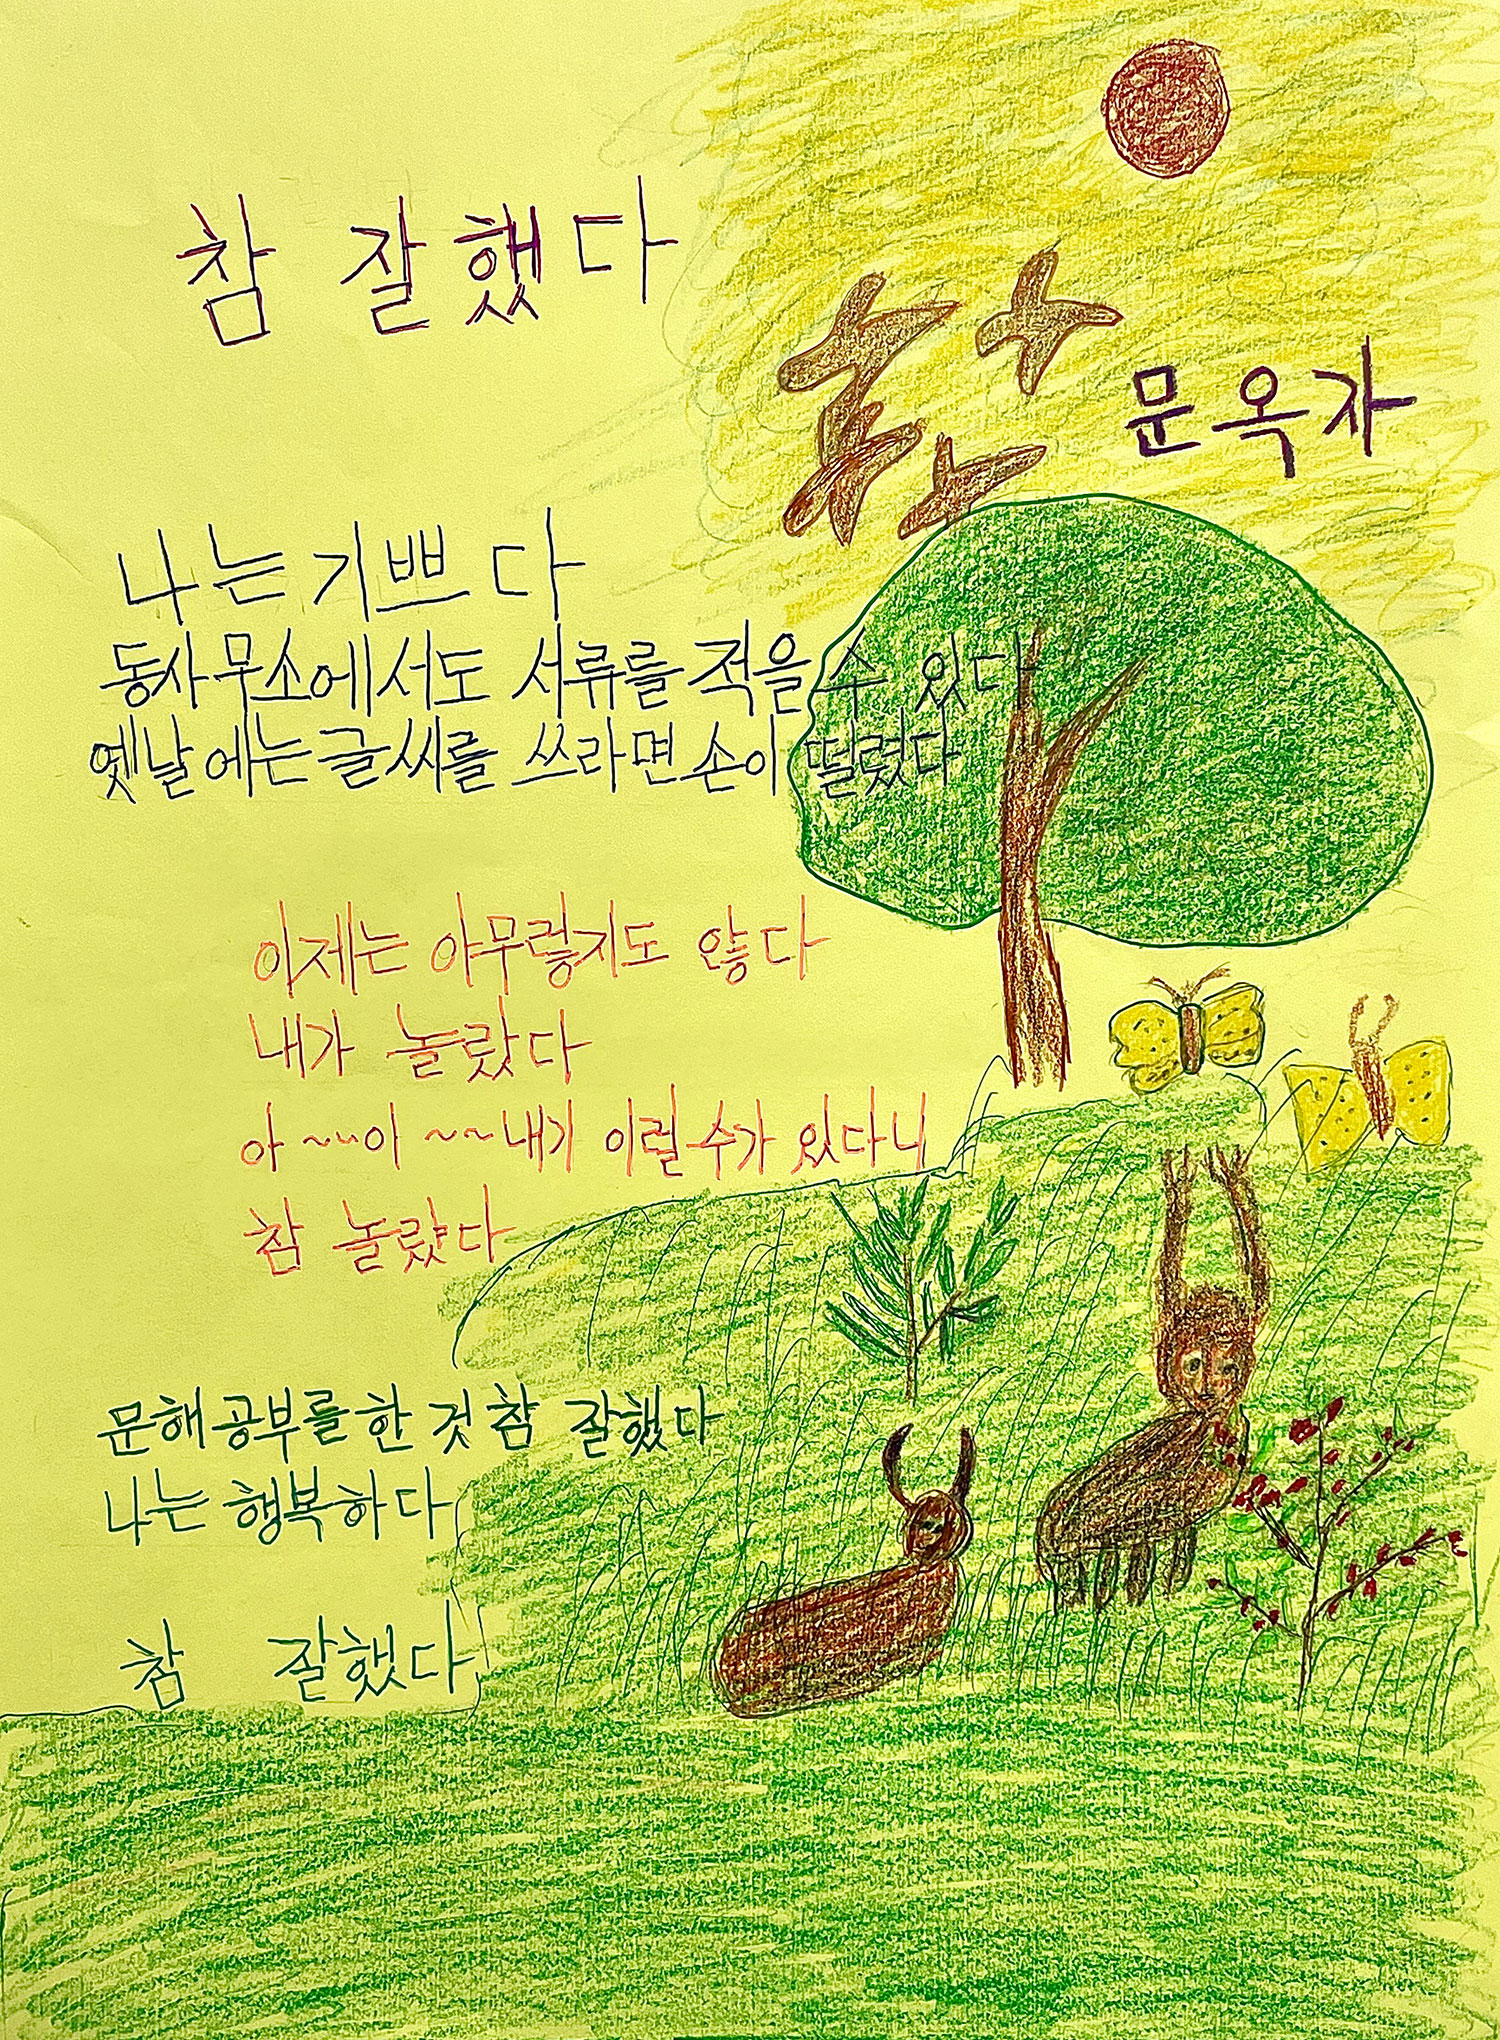 참 잘했다
문옥자
나는 기쁘다
동사무소에서도 서류를 적을 수 있다
옛날에는 글씨를 쓰라면 손이 떨렸다
이제는 아무렇지도 않다
내가 놀랐다
아~~아~~내가 이럴수가 있다니
참 놀랐다
문해공부를 한 것 참 잘했다
나는 행복하다
참 잘했다